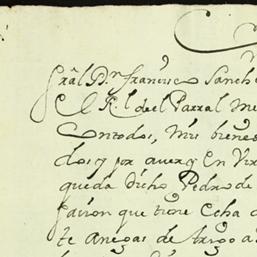 Grâl Dn. francisco Sanch
El Rl. de el Parral me
Contodos, mis biene
dos y por aver y En Vir
queda dicho Pedro de
que tiene Echa
te Anegas de trigo a